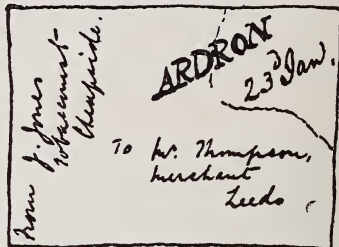 From J. Jones
Tobacconist
Cheapside.
ARDRON
23d Jan.
To Mr. Thompson,
Merchant
Leeds